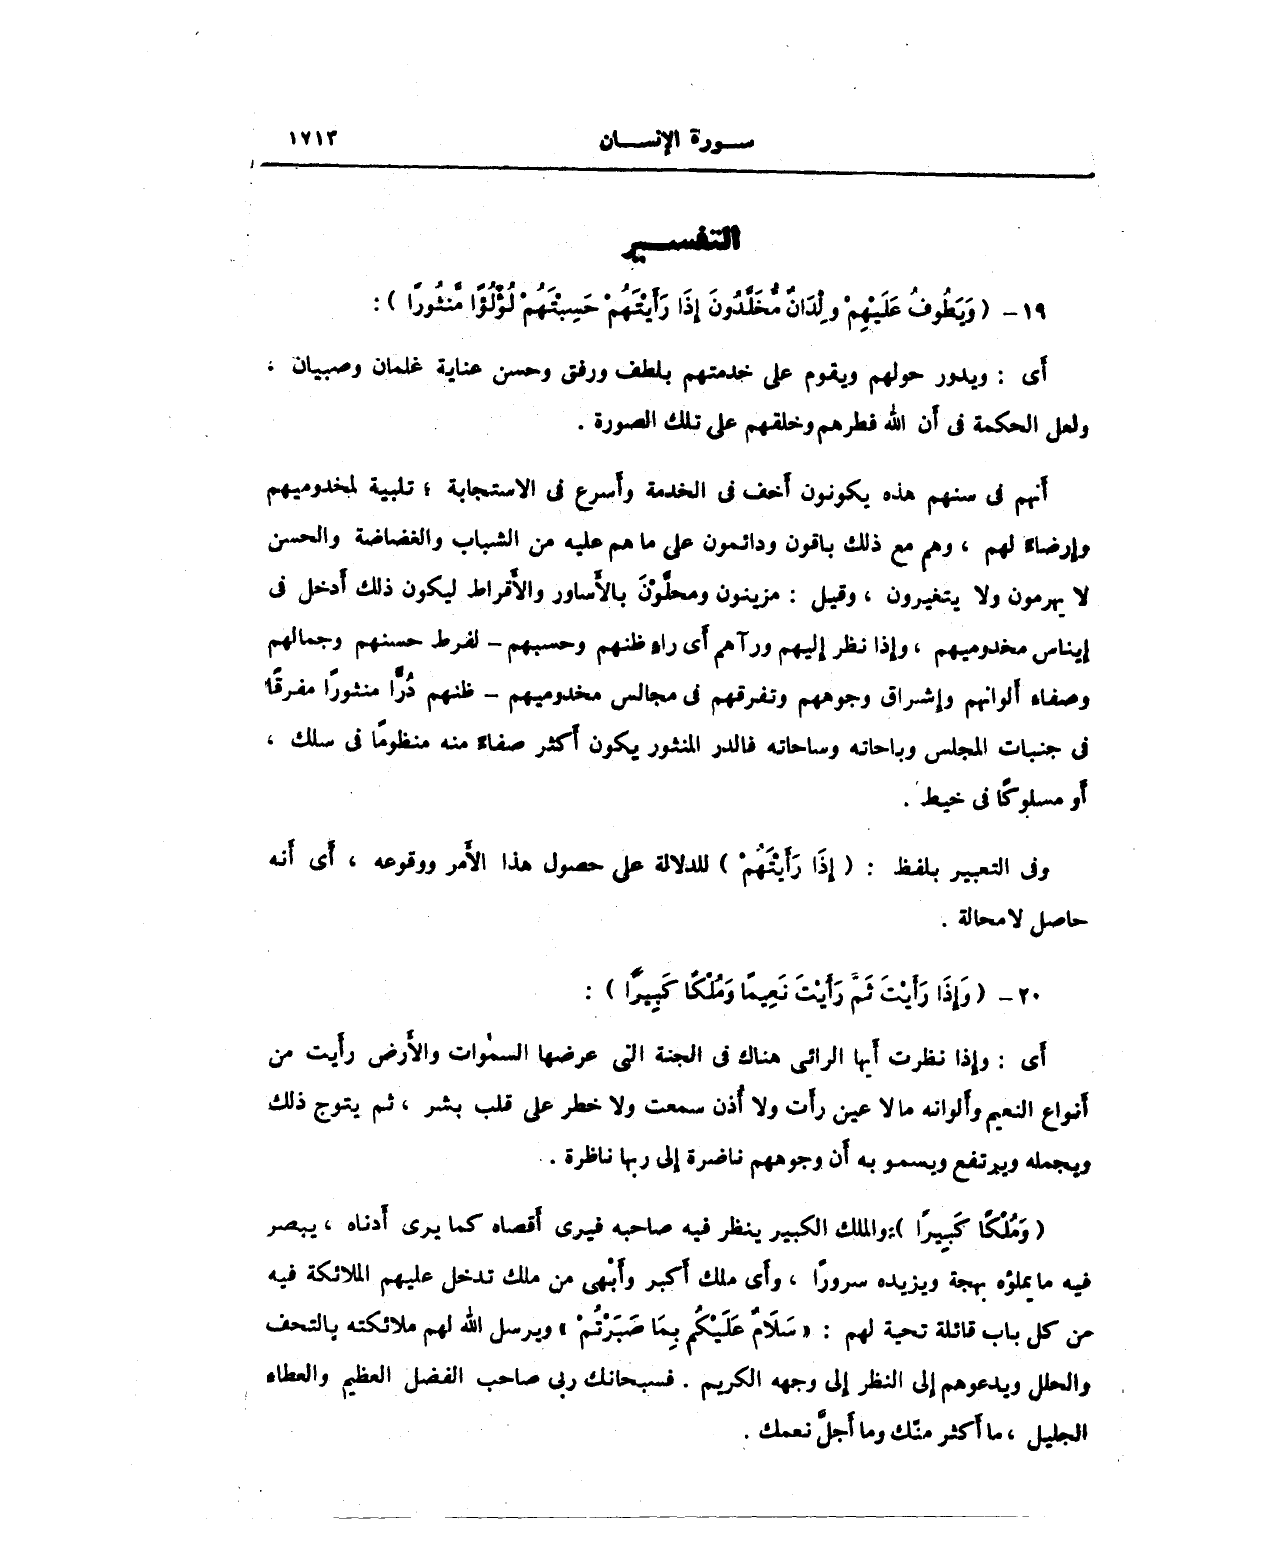 سورة الإنسان ١٧١٣
التفسير
١٩ - ( وَيَطُوفُ عَلَيْهِمْ وِلْدَانٌ مُّخَلَّدُونَ إِذَا رَأَيْتَهُمْ حَسِبْتَهُمْ لُؤْلُؤًا مَّنثُورًا ) :
أى : ويدور حولهم ويقوم على خدمتهم بلطف ورفق وحسن عناية غلمان وصبيان ،
ولعل الحكمة فى أن الله فطرهم وخلقهم على تلك الصورة .
أنهم فى سنهم هذه يكونون أخف فى الخدمة وأسرع فى الاستجابة ؛ تلبية لمخدوميهم
وإرضاءً لهم ، وهم مع ذلك باقون ودائمون على ما هم عليه من الشباب والغضاضة والحسن
لا يهرمون ولا يتغيرون ، وقيل : مزينون ومحلَّوْنَ بالأَساور والأَقراط ليكون ذلك أدخل فى
إيناس مخدوميهم ، وإذا نظر إليهم ورآهم أى راءٍ ظنهم وحسبهم – لفرط حسنهم وجمالهم
وصفاء ألوانهم وإشراق وجوههم وتفرقهم فى مجالس مخدوميهم – ظنهم دُرًّا منثورًا مفرقًا
فى جنبات المجلس وباحاته وساحاته فالدر المنثور يكون أكثر صفاءً منه منظومًا فى سلك ،
أو مسلوكًا فى خيط .
وفى التعبير بلفظ : ( إِذَا رَأَيْتَهُمْ ) للدلالة على حصول هذا الأَمر ووقوعه ، أى أنه
حاصل لا محالة .
٢٠ - ( وَإِذَا رَأَيْتَ ثَمَّ رَأَيْتَ نَعِيمًا وَمُلْكًا كَبِيرًا ) :
أى : وإذا نظرت أيها الرائى هناك فى الجنة التى عرضها السمٰوات والأَرض رأيت من
أنواع النعيم وألوانه ما لا عين رأت ولا أُذن سمعت ولا خطر على قلب بشر ، ثم يتوج ذلك
ويجمله ويرتفع ويسمو به أن وجوههم ناضرة إلى ربها ناظرة .
( وَمُلْكًا كَبِيرًا ): والملك الكبير ينظر فيه صاحبه فيرى أقصاه كما يرى أدناه ، يبصر
فيه ما يملؤه بهجة ويزيده سرورًا ، وأى ملك أكبر وأبْهى من ملك تدخل عليهم الملائكة فيه
من كل باب قائلة تحية لهم : « سَلَامٌ عَلَيْكُم بِمَا صَبَرْتُمْ » ويرسل الله لهم ملائكته بالتحف
والحلل ويدعوهم إلى النظر إلى وجهه الكريم . فسبحانك ربى صاحب الفضل العظيم والعطاء
الجليل ، ما أكثر منّك وما أجلَّ نعمك .